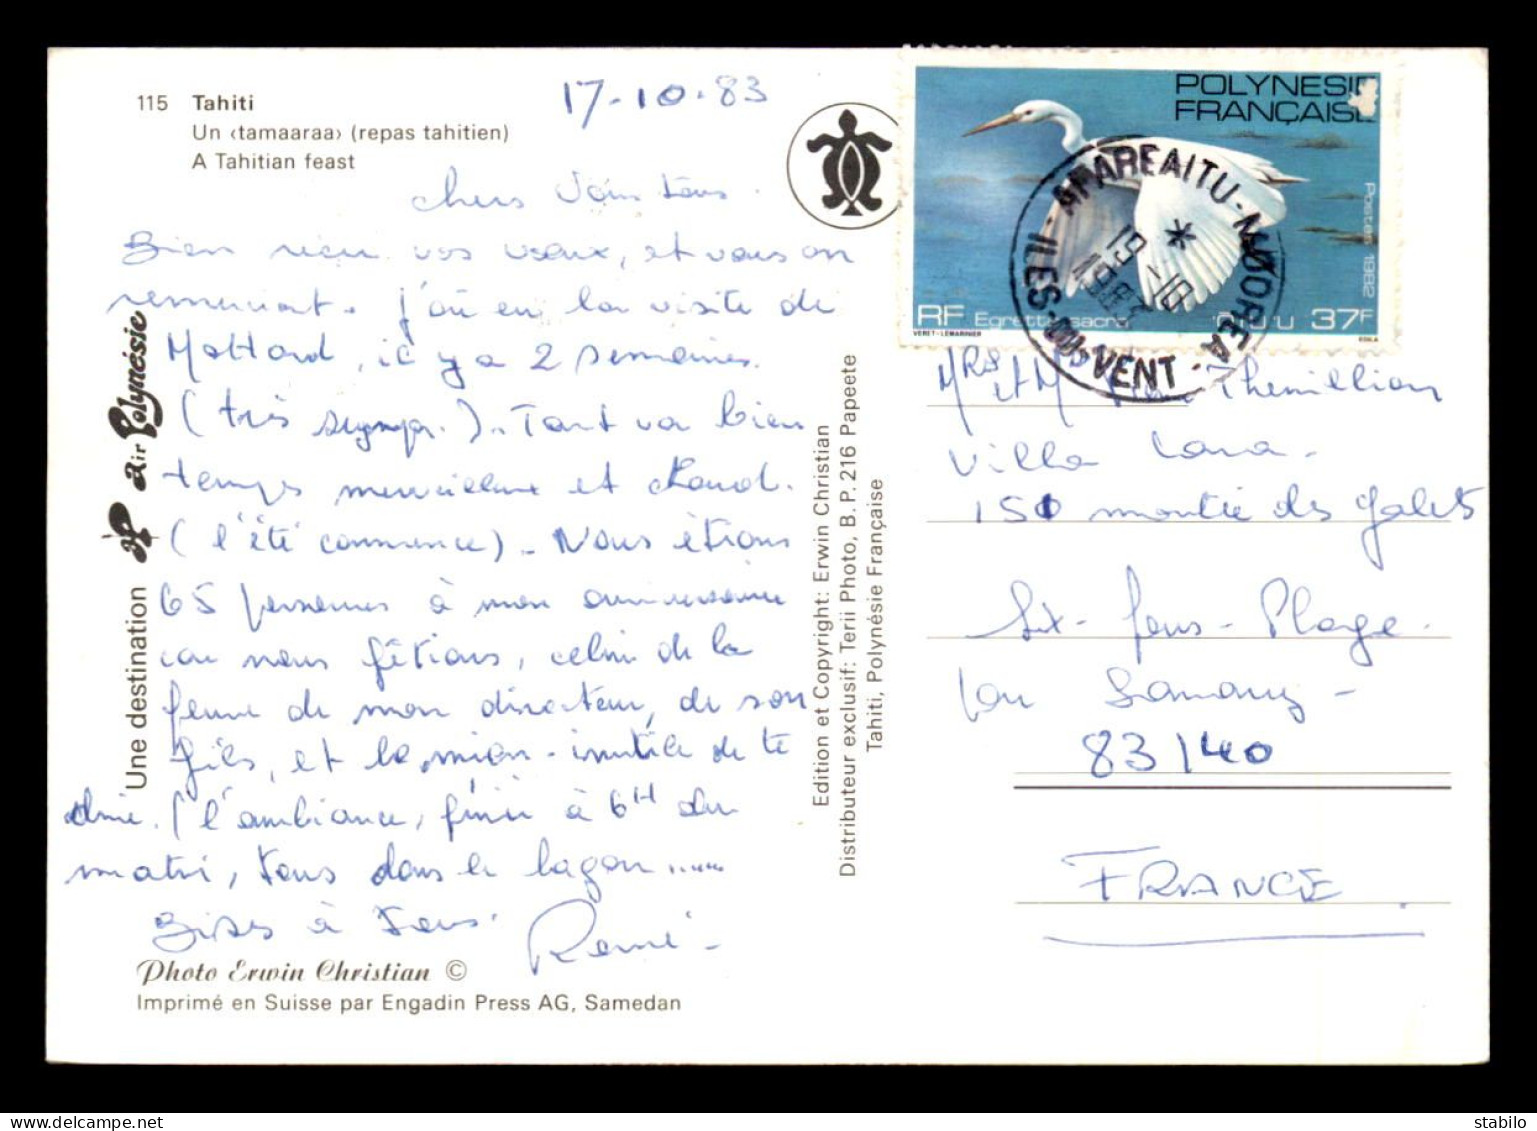 115 Tahiti
Un ‹tamaaraa› (repas tahitien)
A Tahitian feast
17-10-83
chers Vous tous.
Bien reçu vos voeux, et vous en
remerciant. J'ai eu la visite de
Mottard, il y a 2 semaines.
(très sympa.). Tout va bien
temps merveilleux et chaud.
(l'été commence). Nous étions
65 personnes à mon anniversaire
car nous fêtions, celui de la
femme de mon directeur, de son
fils, et le mien - inutile de te
dire. l'ambiance, finir à 6H du
matin, tous dans le lagon.....
Bises à tous.
Rémi -
Photo Erwin Christian ©
Imprimé en Suisse par Engadin Press AG, Samedan
Une destination air Polynésie
Edition et Copyright: Erwin Christian
Distributeur exclusif: Terii Photo, B. P. 216 Papeete
Tahiti, Polynésie Française
POLYNESIE
FRANÇAISE
Postes 1982
RF Egretta sacra ÔTU'U 37F
VERET-LEMARINIER
AFAREAITU-MOOREA
19-10
1983
ILES-DU-VENT
MRS et M Themillion
Villa Cara -
150 montée des galets
Six-fours-Plage.
83140
FRANCE.